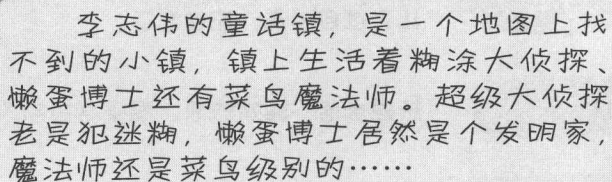 李志伟的童话镇，是一个地图上找
不到的小镇，镇上生活着糊涂大侦探、
懒蛋博士还有菜鸟魔法师。超级大侦探
老是犯迷糊，懒蛋博士居然是个发明家，
魔法师还是菜鸟级别的……